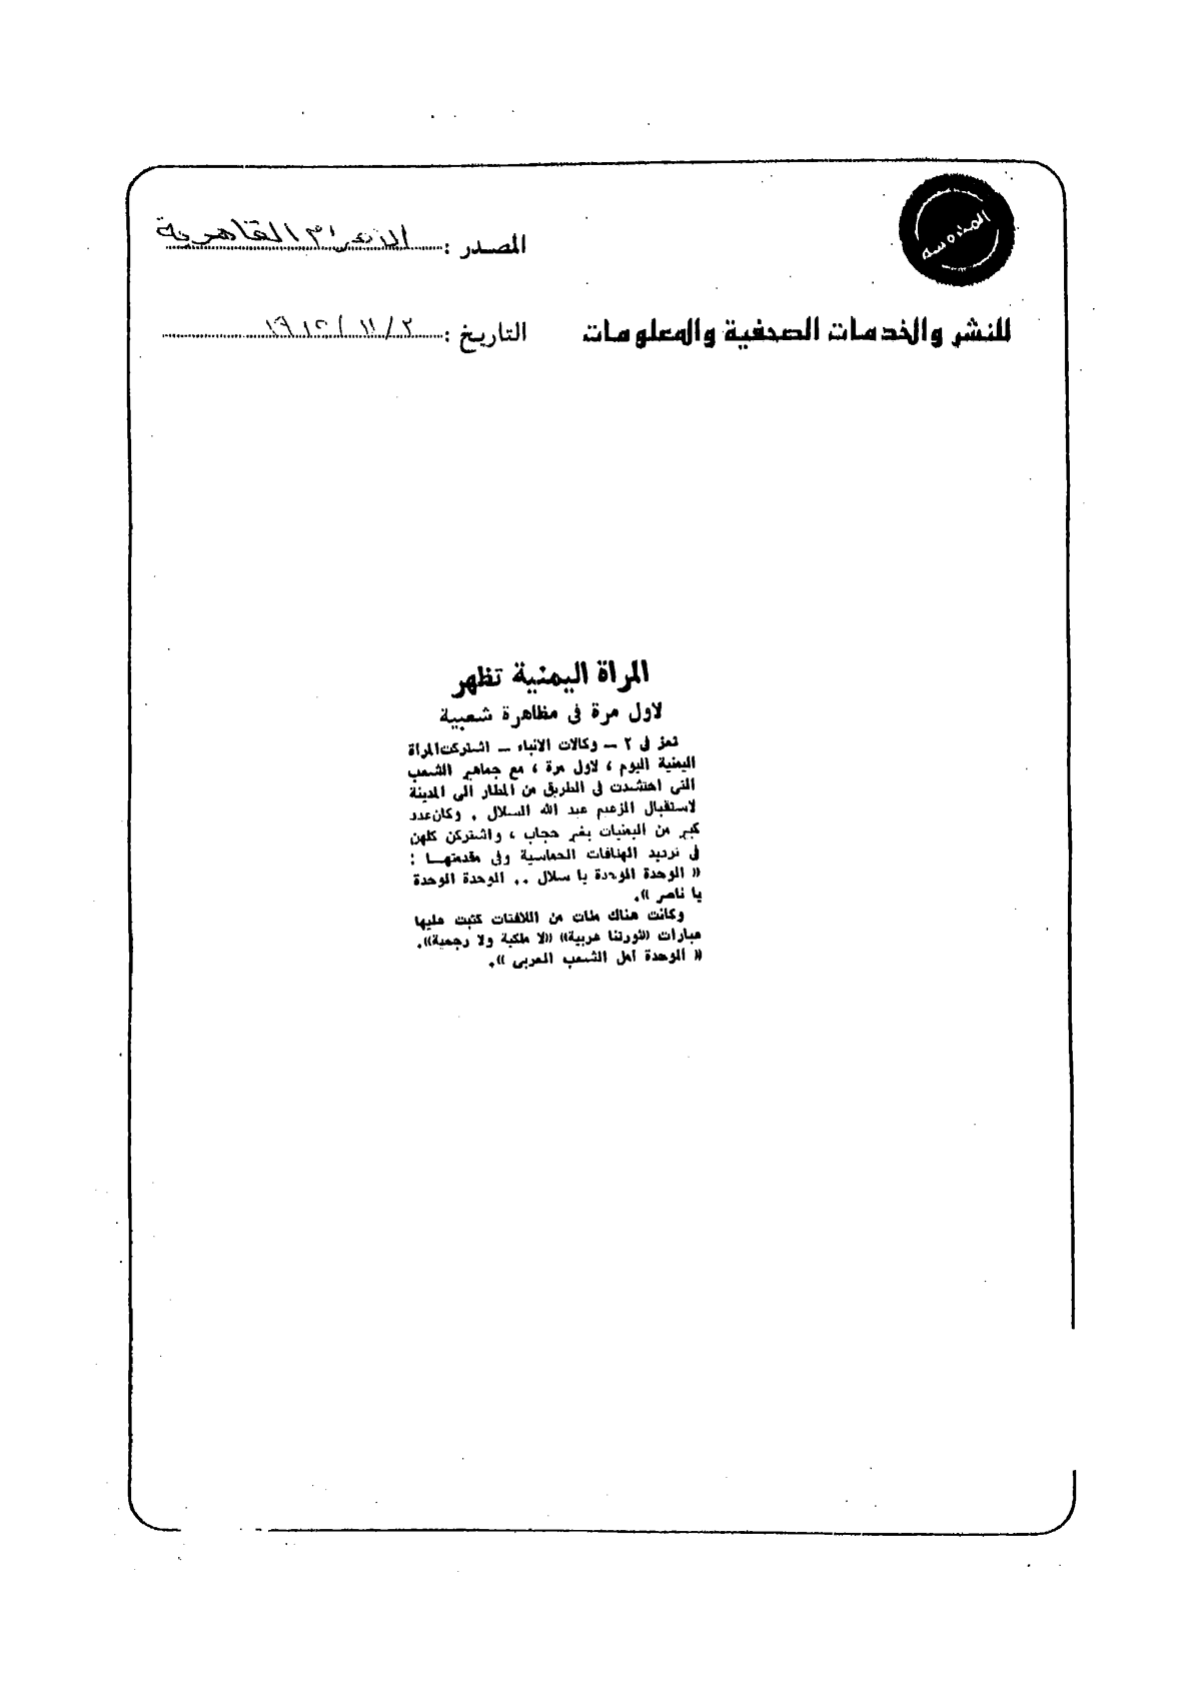 المصدر : الأهرام القاهرية
للنشر والخدمات الصحفية والمعلومات
التاريخ : ٢ / ١١ /
المرأة اليمنية تظهر
لاول مرة فى مظاهرة شعبية
تعز فى ٢ – وكالات الانباء – اشتركت المرأة
اليمنية اليوم ، لاول مرة ، مع جماهير الشعب
التى احتشدت فى الطريق من المطار الى المدينة
لاستقبال الزعيم عبد الله السلال . وكان عدد
كبير من اليمنيات بغير حجاب ، واشتركن كلهن
فى ترديد الهتافات الحماسية وفى مقدمتهـا :
« الوحدة الوحدة يا سلال .. الوحدة الوحدة
يا ناصر ».
وكانت هناك مئات من اللافتات كتبت عليها
عبارات «ثورتنا عربية» «لا ملكية ولا رجعية».
« الوحدة امل الشعب العربى ».